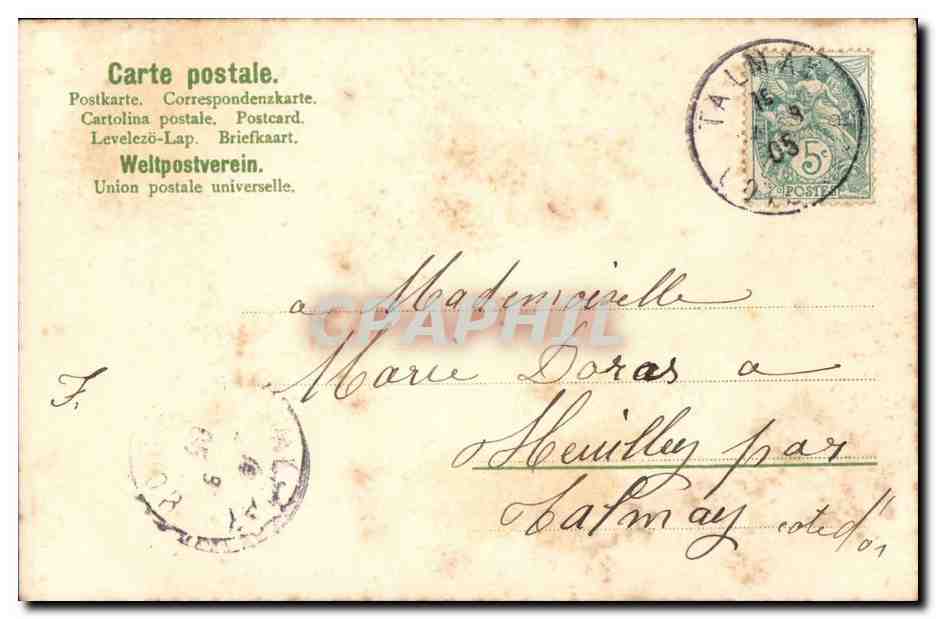 Carte postale.
Postkarte. Correspondenzkarte.
Cartolina postale. Postcard.
Levelezö-Lap. Briefkaart.
Weltpostverein.
Union postale universelle.
TALMAY
05
5c
POSTES
CPAPHIL
a Mademoiselle
Marie Doras a
Heuilley par
Talmay cote d'or
F.